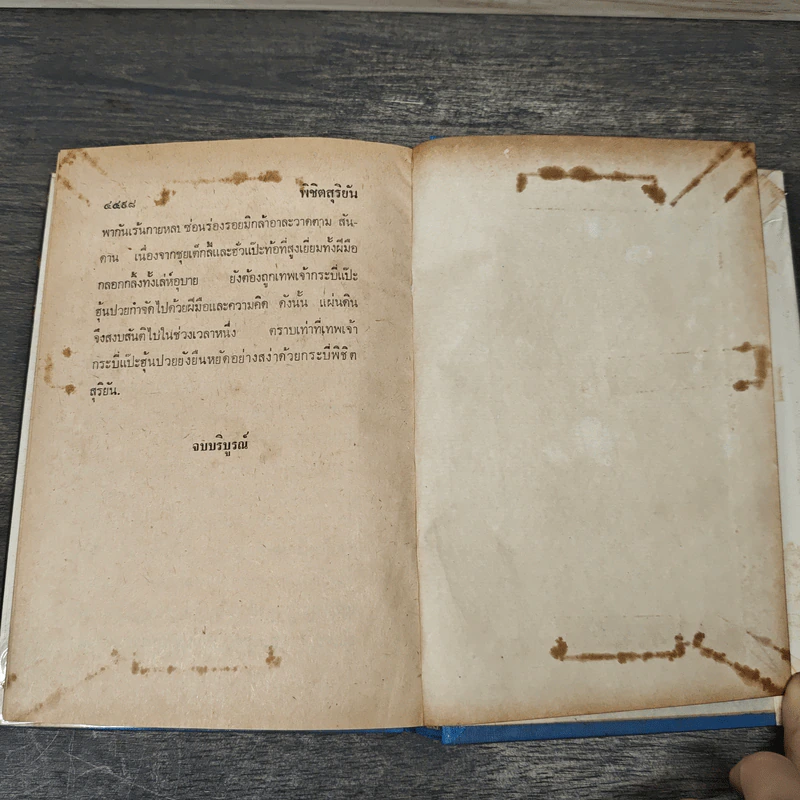 ๔๕๙๘ พิชิตสุริยัน
พากันเร้นกายหลบซ่อนร่องรอยมิกล้าอาละวาดตาม สัน-
ดาน เนื่องจากซุยเต็กลี้และฮั่วแป๊ะท้อที่สูงเยี่ยมทั้งฝีมือ
กลอกกลิ้งทั้งเล่ห์อุบาย ยังต้องถูกเทพเจ้ากระบี่แป๊ะ
ฮุ้นปวยกำจัดไปด้วยฝีมือและความคิด ดังนั้น แผ่นดิน
จึงสงบสันติไปในช่วงเวลาหนึ่ง ตราบเท่าที่เทพเจ้า
กระบี่แป๊ะฮุ้นปวยยังยืนหยัดอย่างสง่าด้วยกระบี่พิชิต
สุริยัน.
จบบริบูรณ์